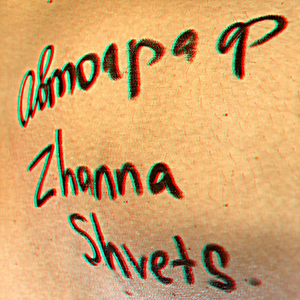 Автограф
Zhanna
Shvets.